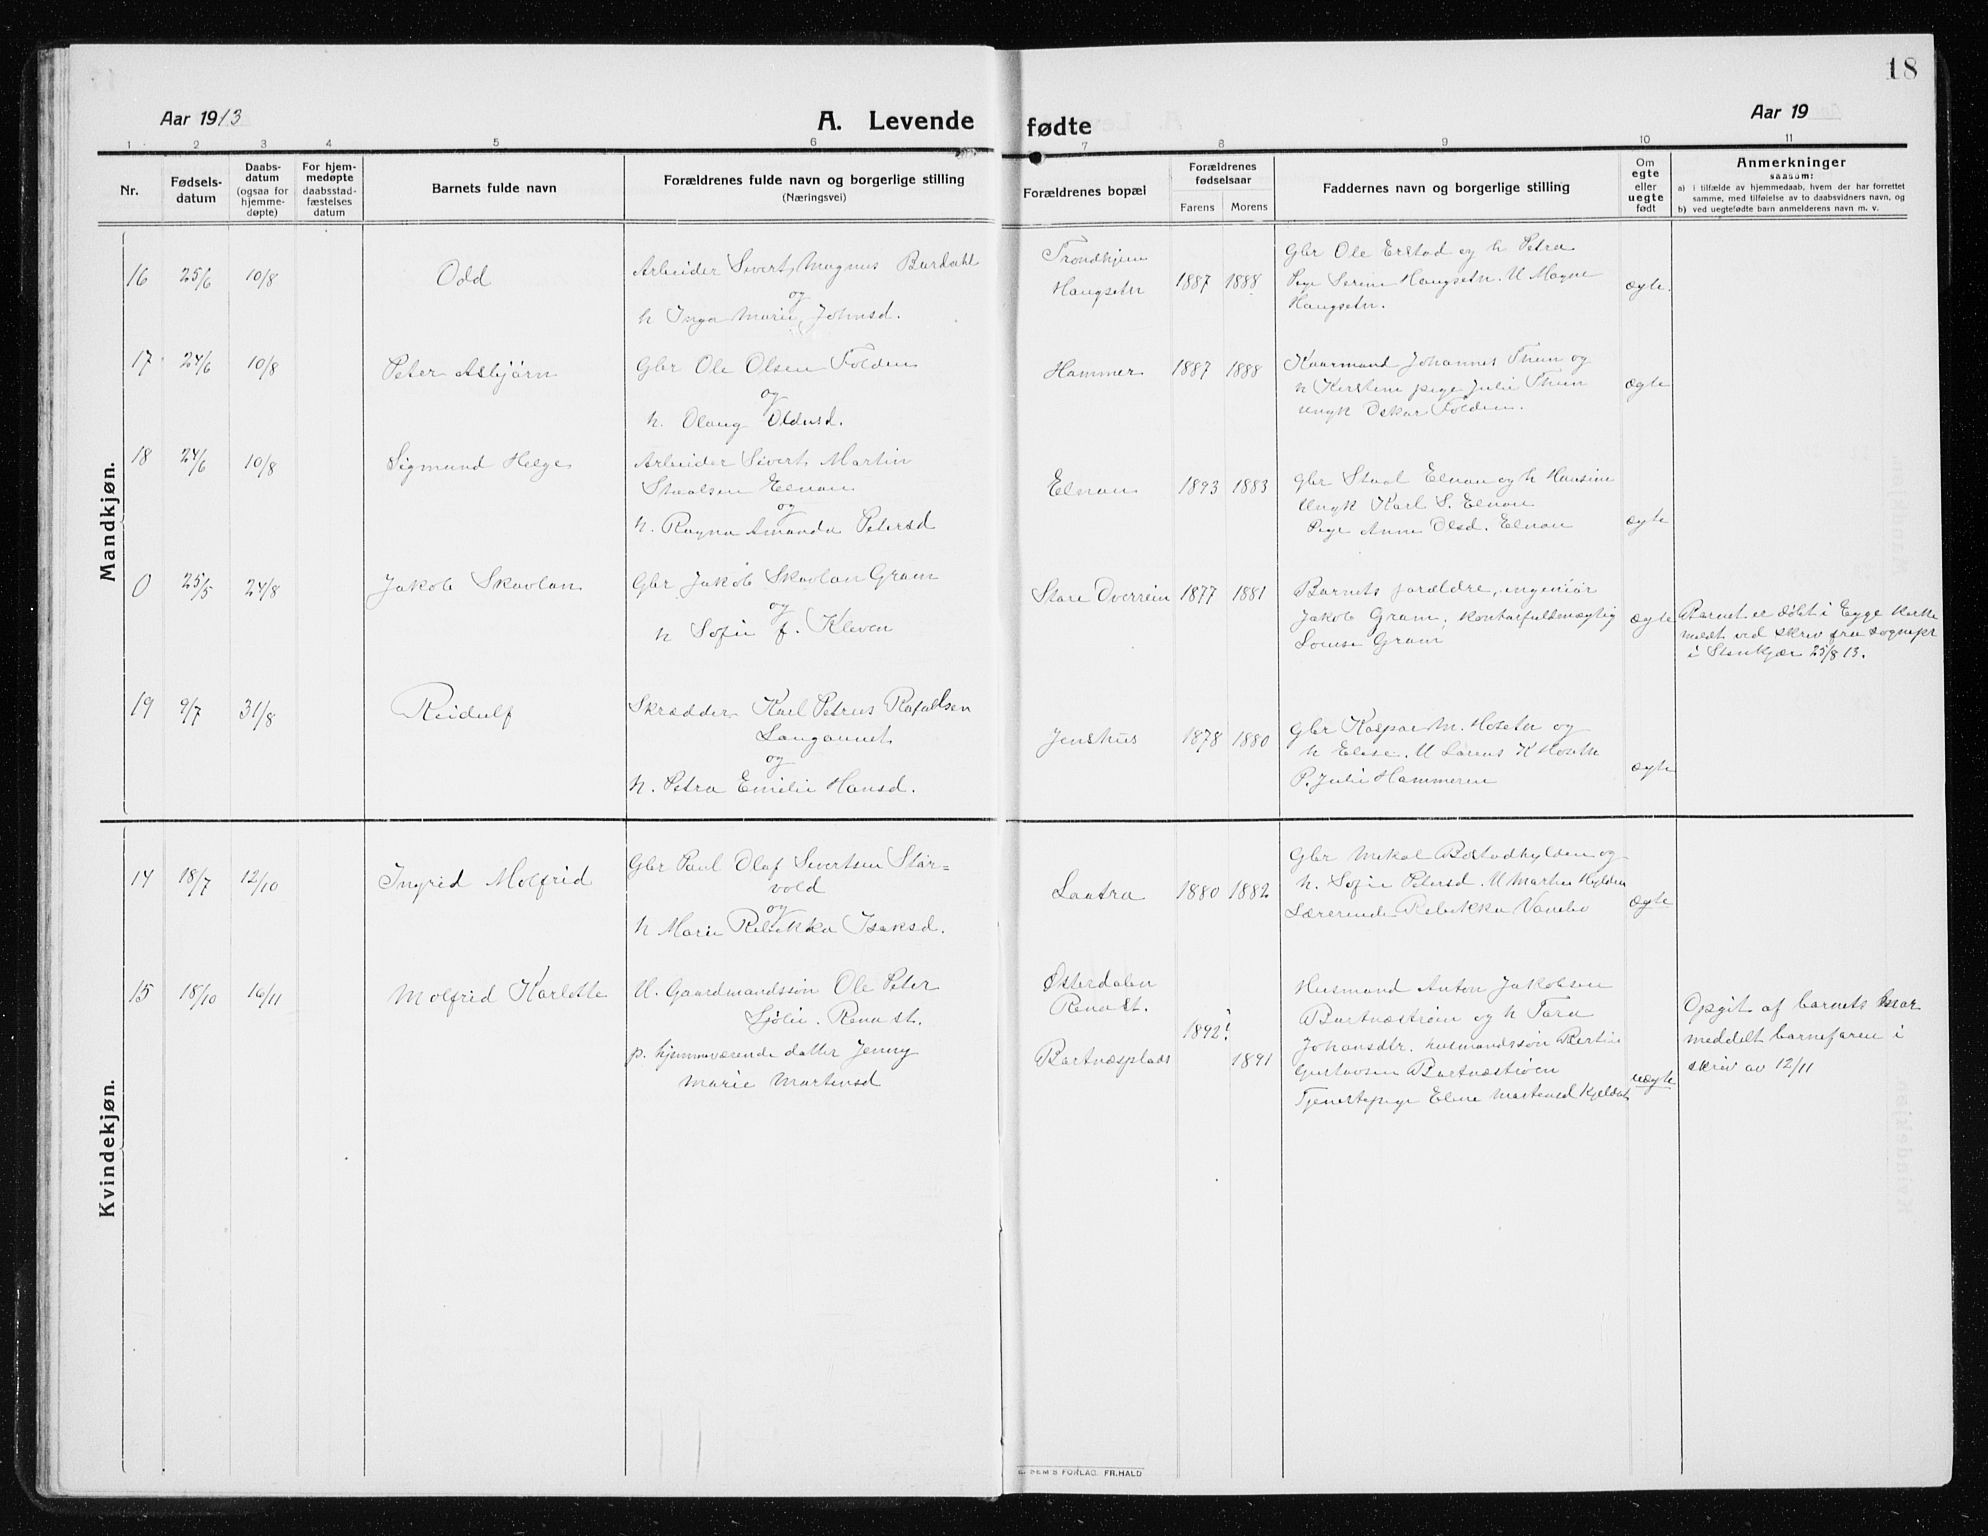 18
Aar 1913
A. Levende fødte
Aar 19
1 2 3 4 5 6 7 8 9 10 11
Nr.
Fødsels-
datum
Daabs-
datum
(ogsaa for
hjemme-
døpte)
For hjem-
medøpte
daabsstad-
fæstelses
datum
Barnets fulde navn
Forældrenes fulde navn og borgerlige stilling
(Næringsvei)
Forældrenes bopæl
Forældrenes
fødselsaar
Farens Morens
Faddernes navn og borgerlige stilling
Om
egte
eller
uegte
født
Anmerkninger
saasom:
a) i tilfælde av hjemmedaab, hvem der har forrettet
samme, med tilføielse av to daabsvidners navn, og
b) ved uegtefødte barn anmelderens navn m. v.
Mandkjøn.
16 25/6 10/8 Odd
Arbeider Sivert Magnus Bardahl
og
h Inga Marie Johnsd.
Trondhjem
Haugsetn
1887 1888
Gbr Ole Erstad og h Petra
Pige Serine Haugsetn. U Magne
Haugsetn.
ægte.
17 24/6 10/8 Peter Asbjørn
Gbr Ole Olsen Folden
og
h. Olaug Oldusd.
Hammer
1887 1888
Kaarmand Johannes Thun og
h Kirstine pige Julie Thun
Ungk Oskar Folden.
ægte
18 24/6 10/8 Sigmund Helge
Arbeider Sivert Martin
Staalsen Elnan
og
h. Ragna Amanda Petersd
Elnan
1893 1883
Gbr Staal Elnan og h Hansine
Ungk Karl S. Elnan
Pige Anne Olsd. Elnan
ægte
0 25/5 24/8 Jakob Skavlan
Gbr Jakob Skavlan Gram
og
h Sofie f. Kleven
Store Overrein
1877 1881
Barnets forældre, ingeniør
Jakob Gram, kontorfuldmægtig
Louise Gram
ægte
Barnet er døbt i Egge kirke
meldt ved skriv fra sognepr
i Stenkjær 25/8 13.
19 9/7 31/8 Reidulf
Skrædder Karl Petrus Rafaelsen
Langaunet
og
h. Petra Emilie Hansd.
Jenshus
1878 1880
Gbr Kaspar M. Hosetn og
h Elise. U Lorens K Hosetn
P. Julie Hammeren
ægte
Kvindekjøn.
14 18/7 12/10 Ingrid Molfrid
Gbr Paul Olaf Sivertsen Stør-
vold
og
h Marie Rebekka Isaksd.
Laatra
1880 1882
Gbr Mikal Bostadhylden og
h. Sofie Petersd. U Martin Hylden
Lærerinde Rebekka Vanebo
ægte
15 18/10 16/11 Molfrid Karlotte
U. Gaardmandssøn Ole Peter
Sjølie. Rena st.
p. hjemmeværende datter Jenny
Marie Martinsd
Østerdalen
Rena st.
Bartnæsplads
1892? 1891
Husmand Anton Jakobsen
Bartnæstrøen og h Tora
Johansdtr. husmandssøn Bertin
Gustavsen Bartnæstrøen
Tjenestepige Eline Martinsd Kjeldset
uægte
Opgit af barnets mor
meddelt barnefaren i
skriv av 12/11
E. SEM'S FORLAG. FR.HALD